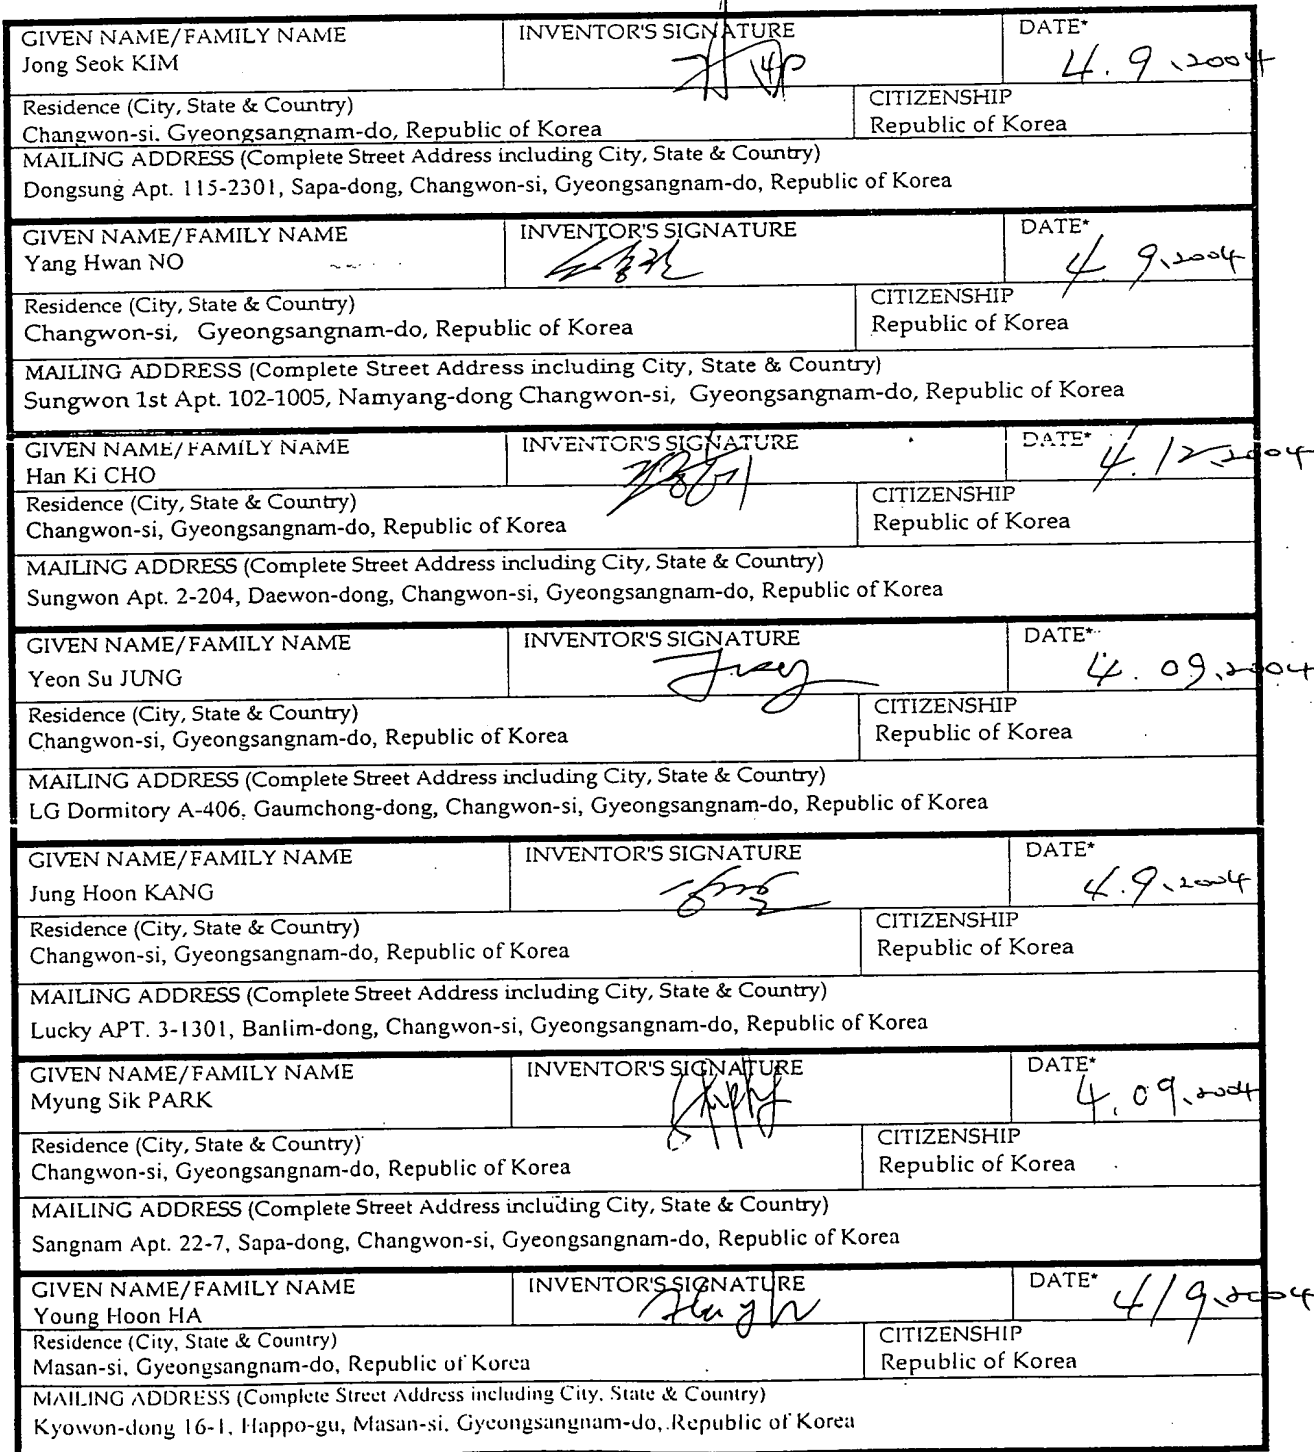 GIVEN NAME/FAMILY NAME INVENTOR'S SIGNATURE DATE*
Jong Seok KIM 4. 9 .2004
Residence (City, State & Country) CITIZENSHIP
Changwon-si. Gyeongsangnam-do, Republic of Korea Republic of Korea
MAILING ADDRESS (Complete Street Address including City, State & Country)
Dongsung Apt. 115-2301, Sapa-dong, Changwon-si, Gyeongsangnam-do, Republic of Korea
GIVEN NAME/FAMILY NAME INVENTOR'S SIGNATURE DATE*
Yang Hwan NO 4. 9.2004
Residence (City, State & Country) CITIZENSHIP
Changwon-si, Gyeongsangnam-do, Republic of Korea Republic of Korea
MAILING ADDRESS (Complete Street Address including City, State & Country)
Sungwon 1st Apt. 102-1005, Namyang-dong Changwon-si, Gyeongsangnam-do, Republic of Korea
GIVEN NAME/FAMILY NAME INVENTOR'S SIGNATURE DATE*
Han Ki CHO 4.12.2004
Residence (City, State & Country) CITIZENSHIP
Changwon-si, Gyeongsangnam-do, Republic of Korea Republic of Korea
MAILING ADDRESS (Complete Street Address including City, State & Country)
Sungwon Apt. 2-204, Daewon-dong, Changwon-si, Gyeongsangnam-do, Republic of Korea
GIVEN NAME/FAMILY NAME INVENTOR'S SIGNATURE DATE*
Yeon Su JUNG 4. 09.2004
Residence (City, State & Country) CITIZENSHIP
Changwon-si, Gyeongsangnam-do, Republic of Korea Republic of Korea
MAILING ADDRESS (Complete Street Address including City, State & Country)
LG Dormitory A-406, Gaumchong-dong, Changwon-si, Gyeongsangnam-do, Republic of Korea
GIVEN NAME/FAMILY NAME INVENTOR'S SIGNATURE DATE*
Jung Hoon KANG 4.9.2004
Residence (City, State & Country) CITIZENSHIP
Changwon-si, Gyeongsangnam-do, Republic of Korea Republic of Korea
MAILING ADDRESS (Complete Street Address including City, State & Country)
Lucky APT. 3-1301, Banlim-dong, Changwon-si, Gyeongsangnam-do, Republic of Korea
GIVEN NAME/FAMILY NAME INVENTOR'S SIGNATURE DATE*
Myung Sik PARK 4.09.2004
Residence (City, State & Country) CITIZENSHIP
Changwon-si, Gyeongsangnam-do, Republic of Korea Republic of Korea
MAILING ADDRESS (Complete Street Address including City, State & Country)
Sangnam Apt. 22-7, Sapa-dong, Changwon-si, Gyeongsangnam-do, Republic of Korea
GIVEN NAME/FAMILY NAME INVENTOR'S SIGNATURE DATE*
Young Hoon HA 4/9.2004
Residence (City, State & Country) CITIZENSHIP
Masan-si, Gyeongsangnam-do, Republic of Korea Republic of Korea
MAILING ADDRESS (Complete Street Address including City, State & Country)
Kyowon-dong 16-1, Happo-gu, Masan-si, Gyeongsangnam-do, Republic of Korea